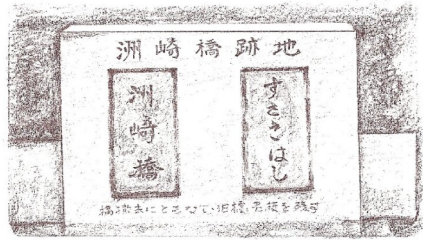 洲崎橋跡地
洲崎橋
すさきはし
橋撤去にともない旧橋名板を残す